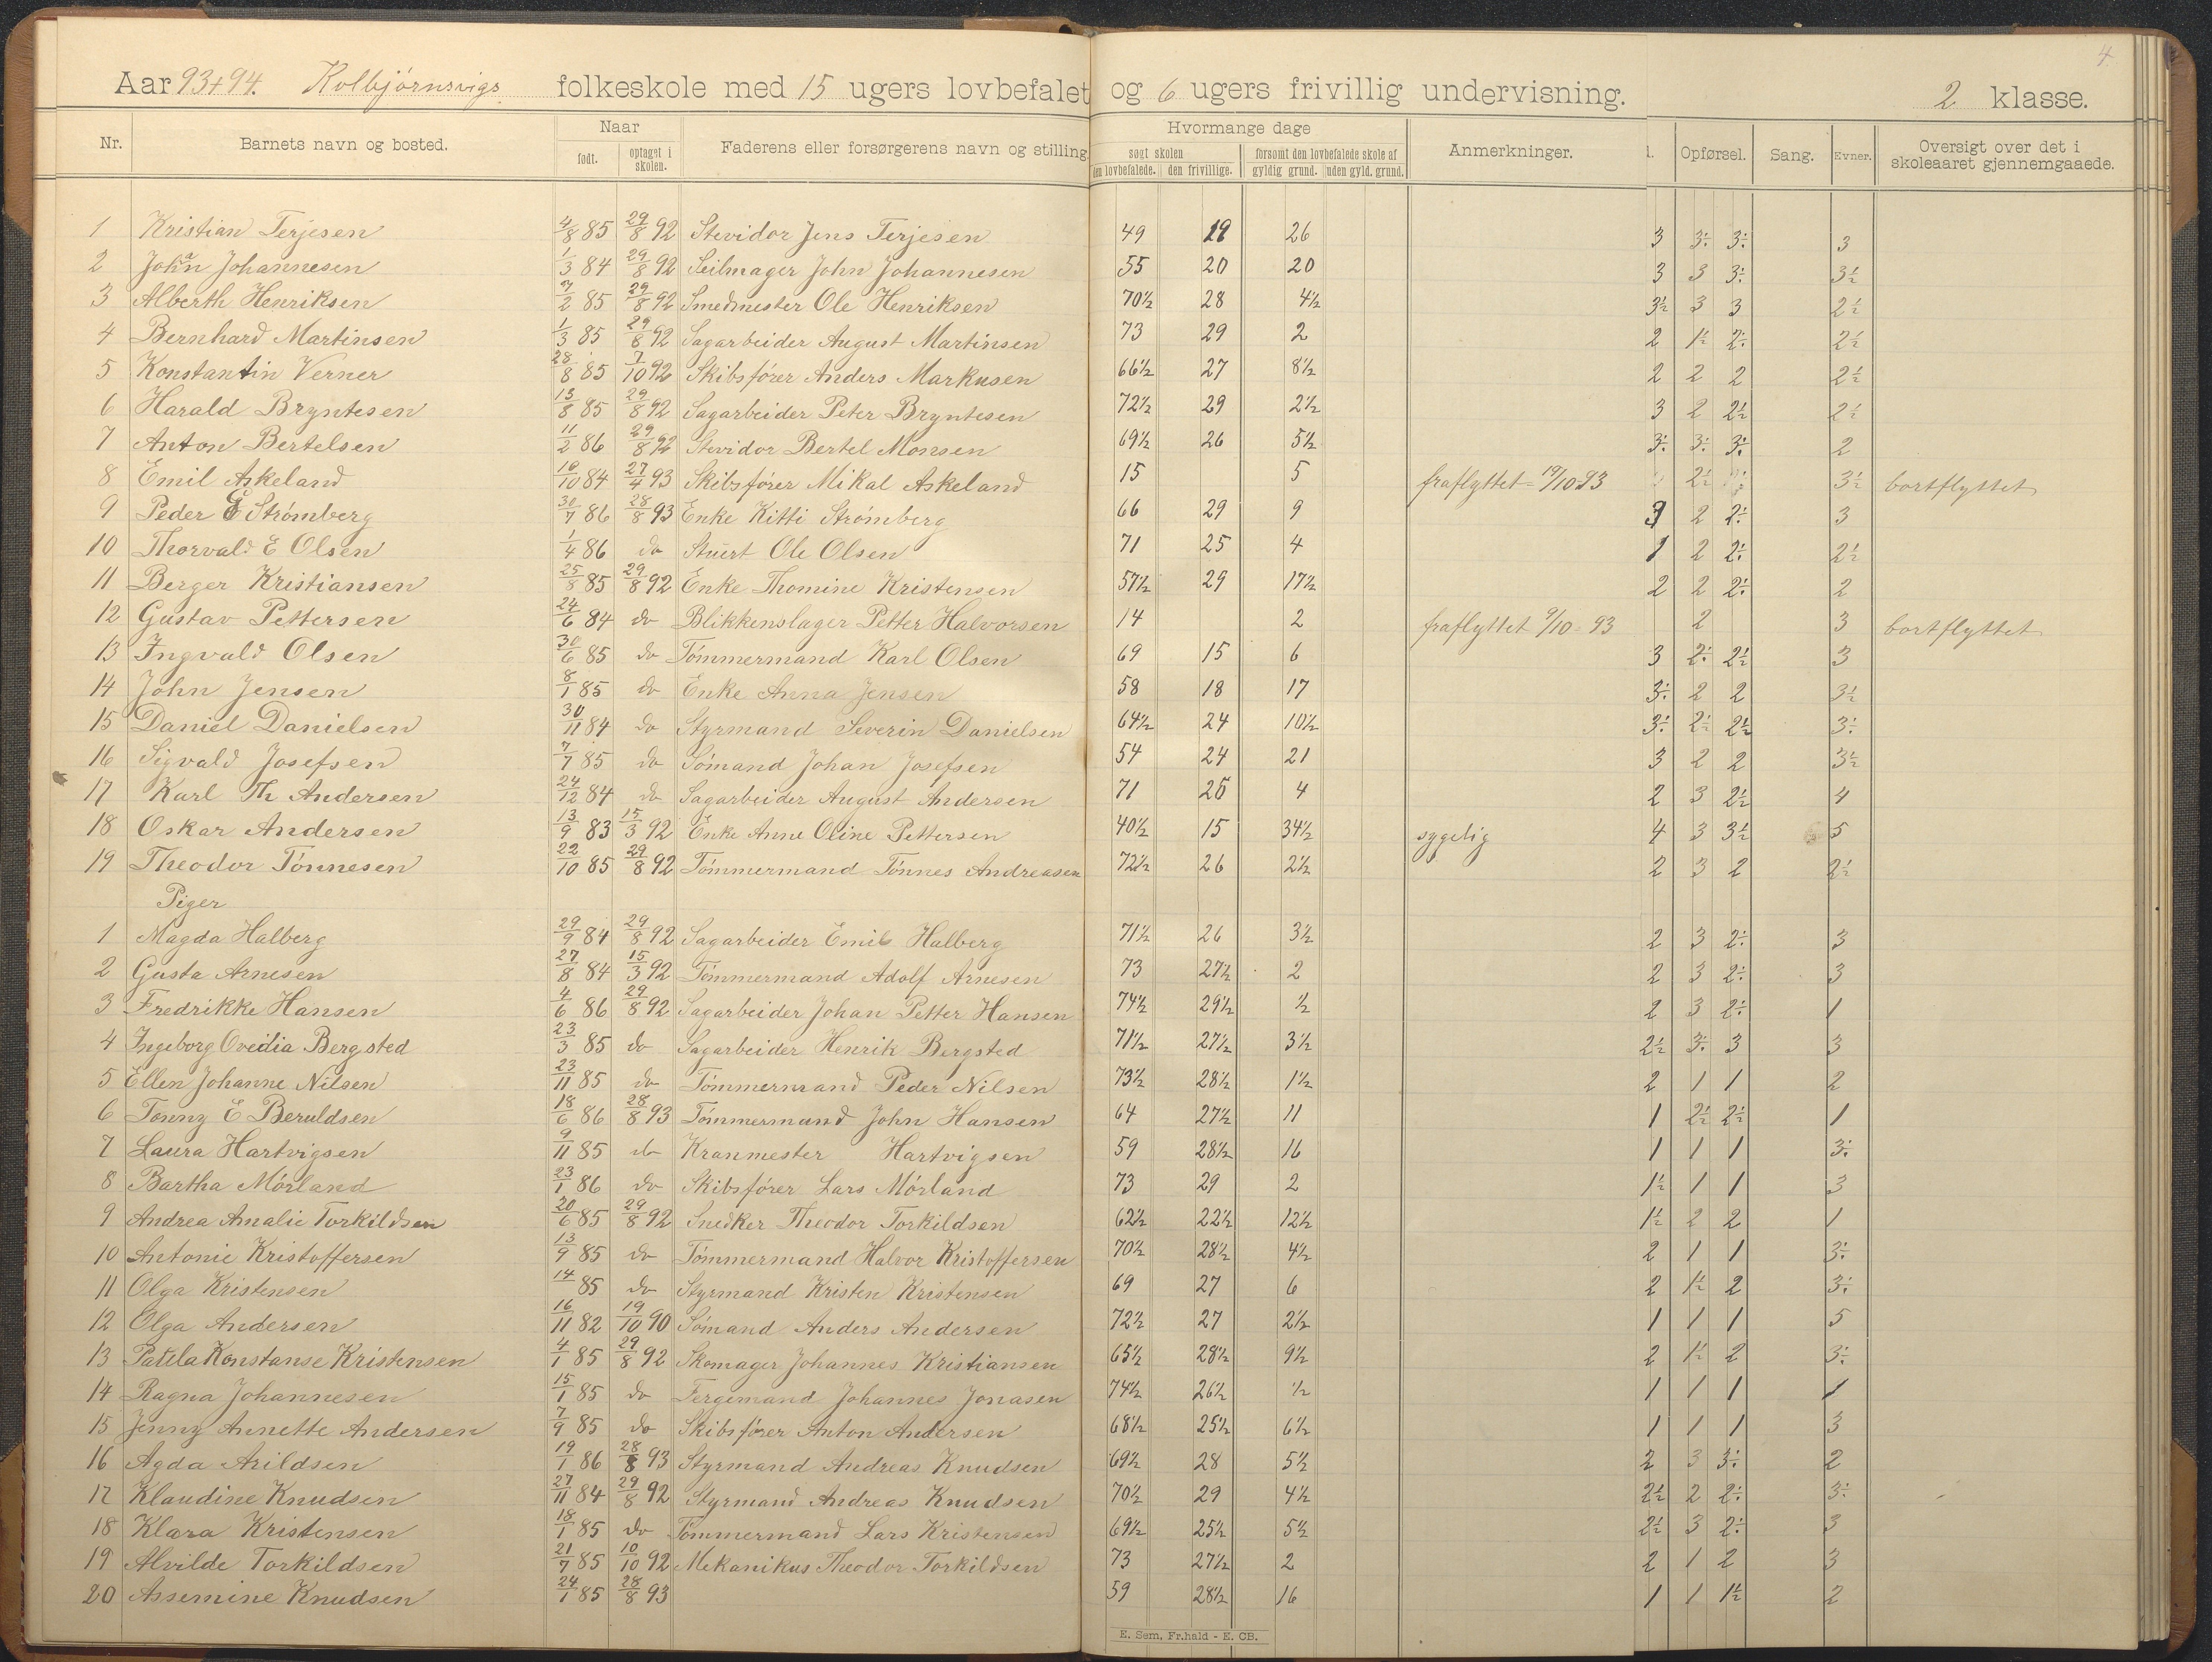 4
Aar 93+94. Kolbjørnsvigs folkeskole med 15 ugers lovbefalet og 6 ugers frivillig undervisning. 2 klasse.
Nr. Barnets navn og bosted. Naar født. optaget i skolen. Faderens eller forsørgerens navn og stilling. Hvormange dage søgt skolen den lovbefalede. den frivillige. forsømt den lovbefalede skole af gyldig grund. uden gyld. grund. Anmerkninger. Opførsel. Sang. Evner. Oversigt over det i skoleaaret gjennemgaaede.
1 Kristian Terjesen 4/8 85 29/8 92 Stevidor Jens Terjesen 49 19 26 3 3÷ 3÷ 3
2 John Johannesen 1/3 84 29/8 92 Seilmager John Johannesen 55 20 20 3 3 3÷ 3½
3 Alberth Henriksen 7/2 85 29/8 92 Smedmester Ole Henriksen 70½ 28 4½ 3½ 3 3 2½
4 Bernhard Martinsen 1/3 85 29/8 92 Sagarbeider August Martinsen 73 29 2 2 1½ 2÷ 2½
5 Konstantin Verner 28/8 85 7/10 92 Skibsfører Anders Markusen 66½ 27 8½ 2 2 2 2½
6 Harald Bryntesen 13/8 85 29/8 92 Sagarbeider Peter Bryntesen 72½ 29 2½ 3 2 2½ 2½
7 Anton Bertelsen 11/2 86 29/8 92 Stevidor Bertel Monsen 69½ 26 5½ 3÷ 3÷ 3÷ 2
8 Emil Askeland 10/10 84 27/4 93 Skibsfører Mikal Askeland 15 5 fraflyttet 19/10 93 2½ 3½ bortflyttet
9 Peder G Strømberg 30/7 86 28/8 93 Enke Kitti Strømberg 66 29 9 3 2 2÷ 3
10 Thorvald E Olsen 1/4 86 do Stuert Ole Olsen 71 25 4 1 2 2÷ 2½
11 Berger Kristiansen 25/8 85 29/8 92 Enke Thomine Kristensen 57½ 29 17½ 2 2 2÷ 2
12 Gustav Pettersen 24/6 84 do Blikkenslager Petter Halvorsen 14 2 fraflyttet 9/10 - 93 2 3 bortflyttet
13 Ingvald Olsen 30/6 85 do Tømmermand Karl Olsen 69 15 6 3 2÷ 2½ 3
14 John Jensen 8/1 85 do Enke Anna Jensen 58 18 17 3÷ 2 2 3½
15 Daniel Danielsen 30/11 84 do Styrmand Severin Danielsen 64½ 24 10½ 3÷ 2½ 2½ 3÷
16 Sigvald Josefsen 7/7 85 do Sømand Johan Josefsen 54 24 21 3 2 2 3½
17 Karl Th Andersen 24/12 84 do Sagarbeider August Andersen 71 25 4 2 3 2½ 4
18 Oskar Andersen 13/9 83 15/3 92 Enke Anne Oline Pettersen 40½ 15 34½ sygelig 4 3 3½ 5
19 Theodor Tønnesen 22/10 85 29/8 92 Tømmermand Tønnes Andreasen 72½ 26 2½ 2 3 2 2½
Piger
1 Magda Halberg 29/9 84 29/8 92 Sagarbeider Emil Halberg 71½ 26 3½ 2 3 2÷ 3
2 Gusta Arnesen 27/8 84 15/3 92 Tømmermand Adolf Arnesen 73 27½ 2 2 3 2÷ 3
3 Fredrikke Hansen 4/6 86 29/8 92 Sagarbeider Johan Petter Hansen 74½ 29½ ½ 2 3 2÷ 1
4 Ingeborg Ovedia Bergsted 23/3 85 do Sagarbeider Henrik Bergsted 71½ 27½ 3½ 2½ 3÷ 3 3
5 Ellen Johanne Nilsen 23/11 85 do Tømmermand Peder Nilsen 73½ 28½ 1½ 2 1 1 2
6 Tonny E Beruldsen 18/6 86 28/8 93 Tømmermand John Hansen 64 27½ 11 1 2½ 2½ 1
7 Laura Hartvigsen 9/11 85 do Kranmester Hartvigsen 59 28½ 16 1 1 1 3÷
8 Bartha Mørland 23/1 86 do Skibsfører Lars Mørland 73 29 2 1½ 1 1 3
9 Andrea Amalie Torkildsen 20/6 85 29/8 92 Snedker Theodor Torkildsen 62½ 22½ 12½ 1½ 2 2 1
10 Antonie Kristoffersen 13/9 85 do Tømmermand Halvor Kristoffersen 70½ 28½ 4½ 2 1 1 3÷
11 Olga Kristensen 14/ 85 do Styrmand Kristen Kristensen 69 27 6 2 1½ 2 3÷
12 Olga Andersen 16/11 82 19/10 90 Sømand Anders Andersen 72½ 27 2½ 1 1 1 5
13 Patela Konstanse Kristensen 4/1 85 29/8 92 Skomager Johannes Kristiansen 65½ 28½ 9½ 2 1½ 2 3÷
14 Ragna Johannesen 15/1 85 do Fergemand Johannes Jonasen 74½ 26½ ½ 1 1 1 1
15 Jenny Annette Andersen 7/9 85 do Skibsfører Anton Andersen 68½ 25½ 6½ 1 1 1 3
16 Agda Arildsen 19/1 86 28/8 93 Styrmand Andreas Knudsen 69½ 28 5½ 2 3 3÷ 2
17 Klaudine Knudsen 27/11 84 29/8 92 Styrmand Andreas Knudsen 70½ 29 4½ 2½ 2 2÷ 3÷
18 Klara Kristensen 18/1 85 do Tømmermand Lars Kristensen 69½ 25½ 5½ 2½ 3 2÷ 3
19 Alvilde Torkildsen 21/7 85 10/10 92 Mekanikus Theodor Torkildsen 73 27½ 2 2 1 2 3
20 Assemine Knudsen 24/1 85 28/8 93 59 28½ 16 1 1 1½ 2
E. Sem, Fr.hald - E. CB.